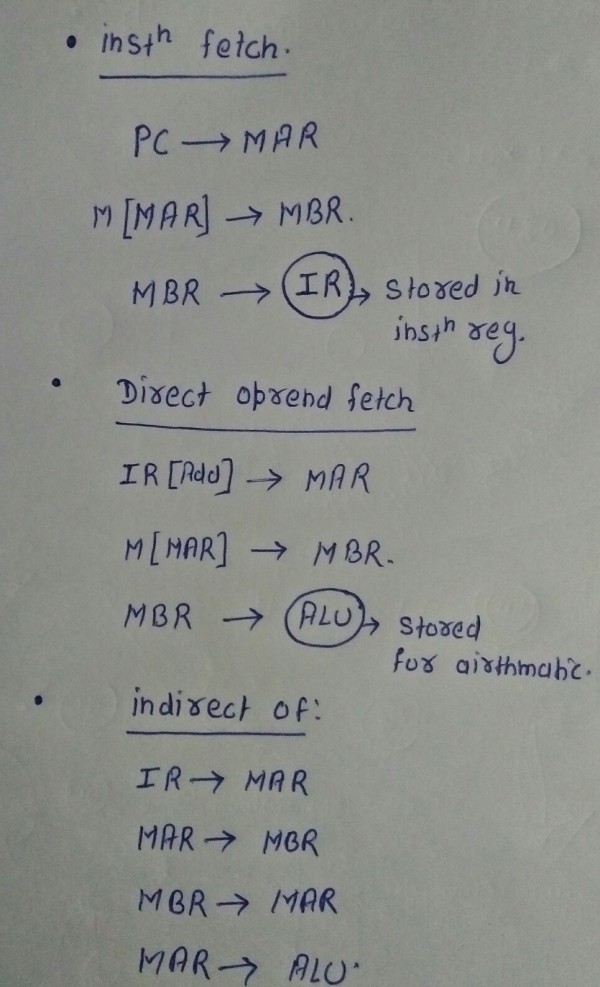 • instⁿ fetch.
PC → MAR
M[MAR] → MBR.
MBR → IR → stored in
instⁿ reg.
• Direct oprend fetch
IR[Add] → MAR
M[MAR] → MBR.
MBR → ALU → stored
for airthmatic.
• indirect of:
IR → MAR
MAR → MBR
MBR → MAR
MAR → ALU.